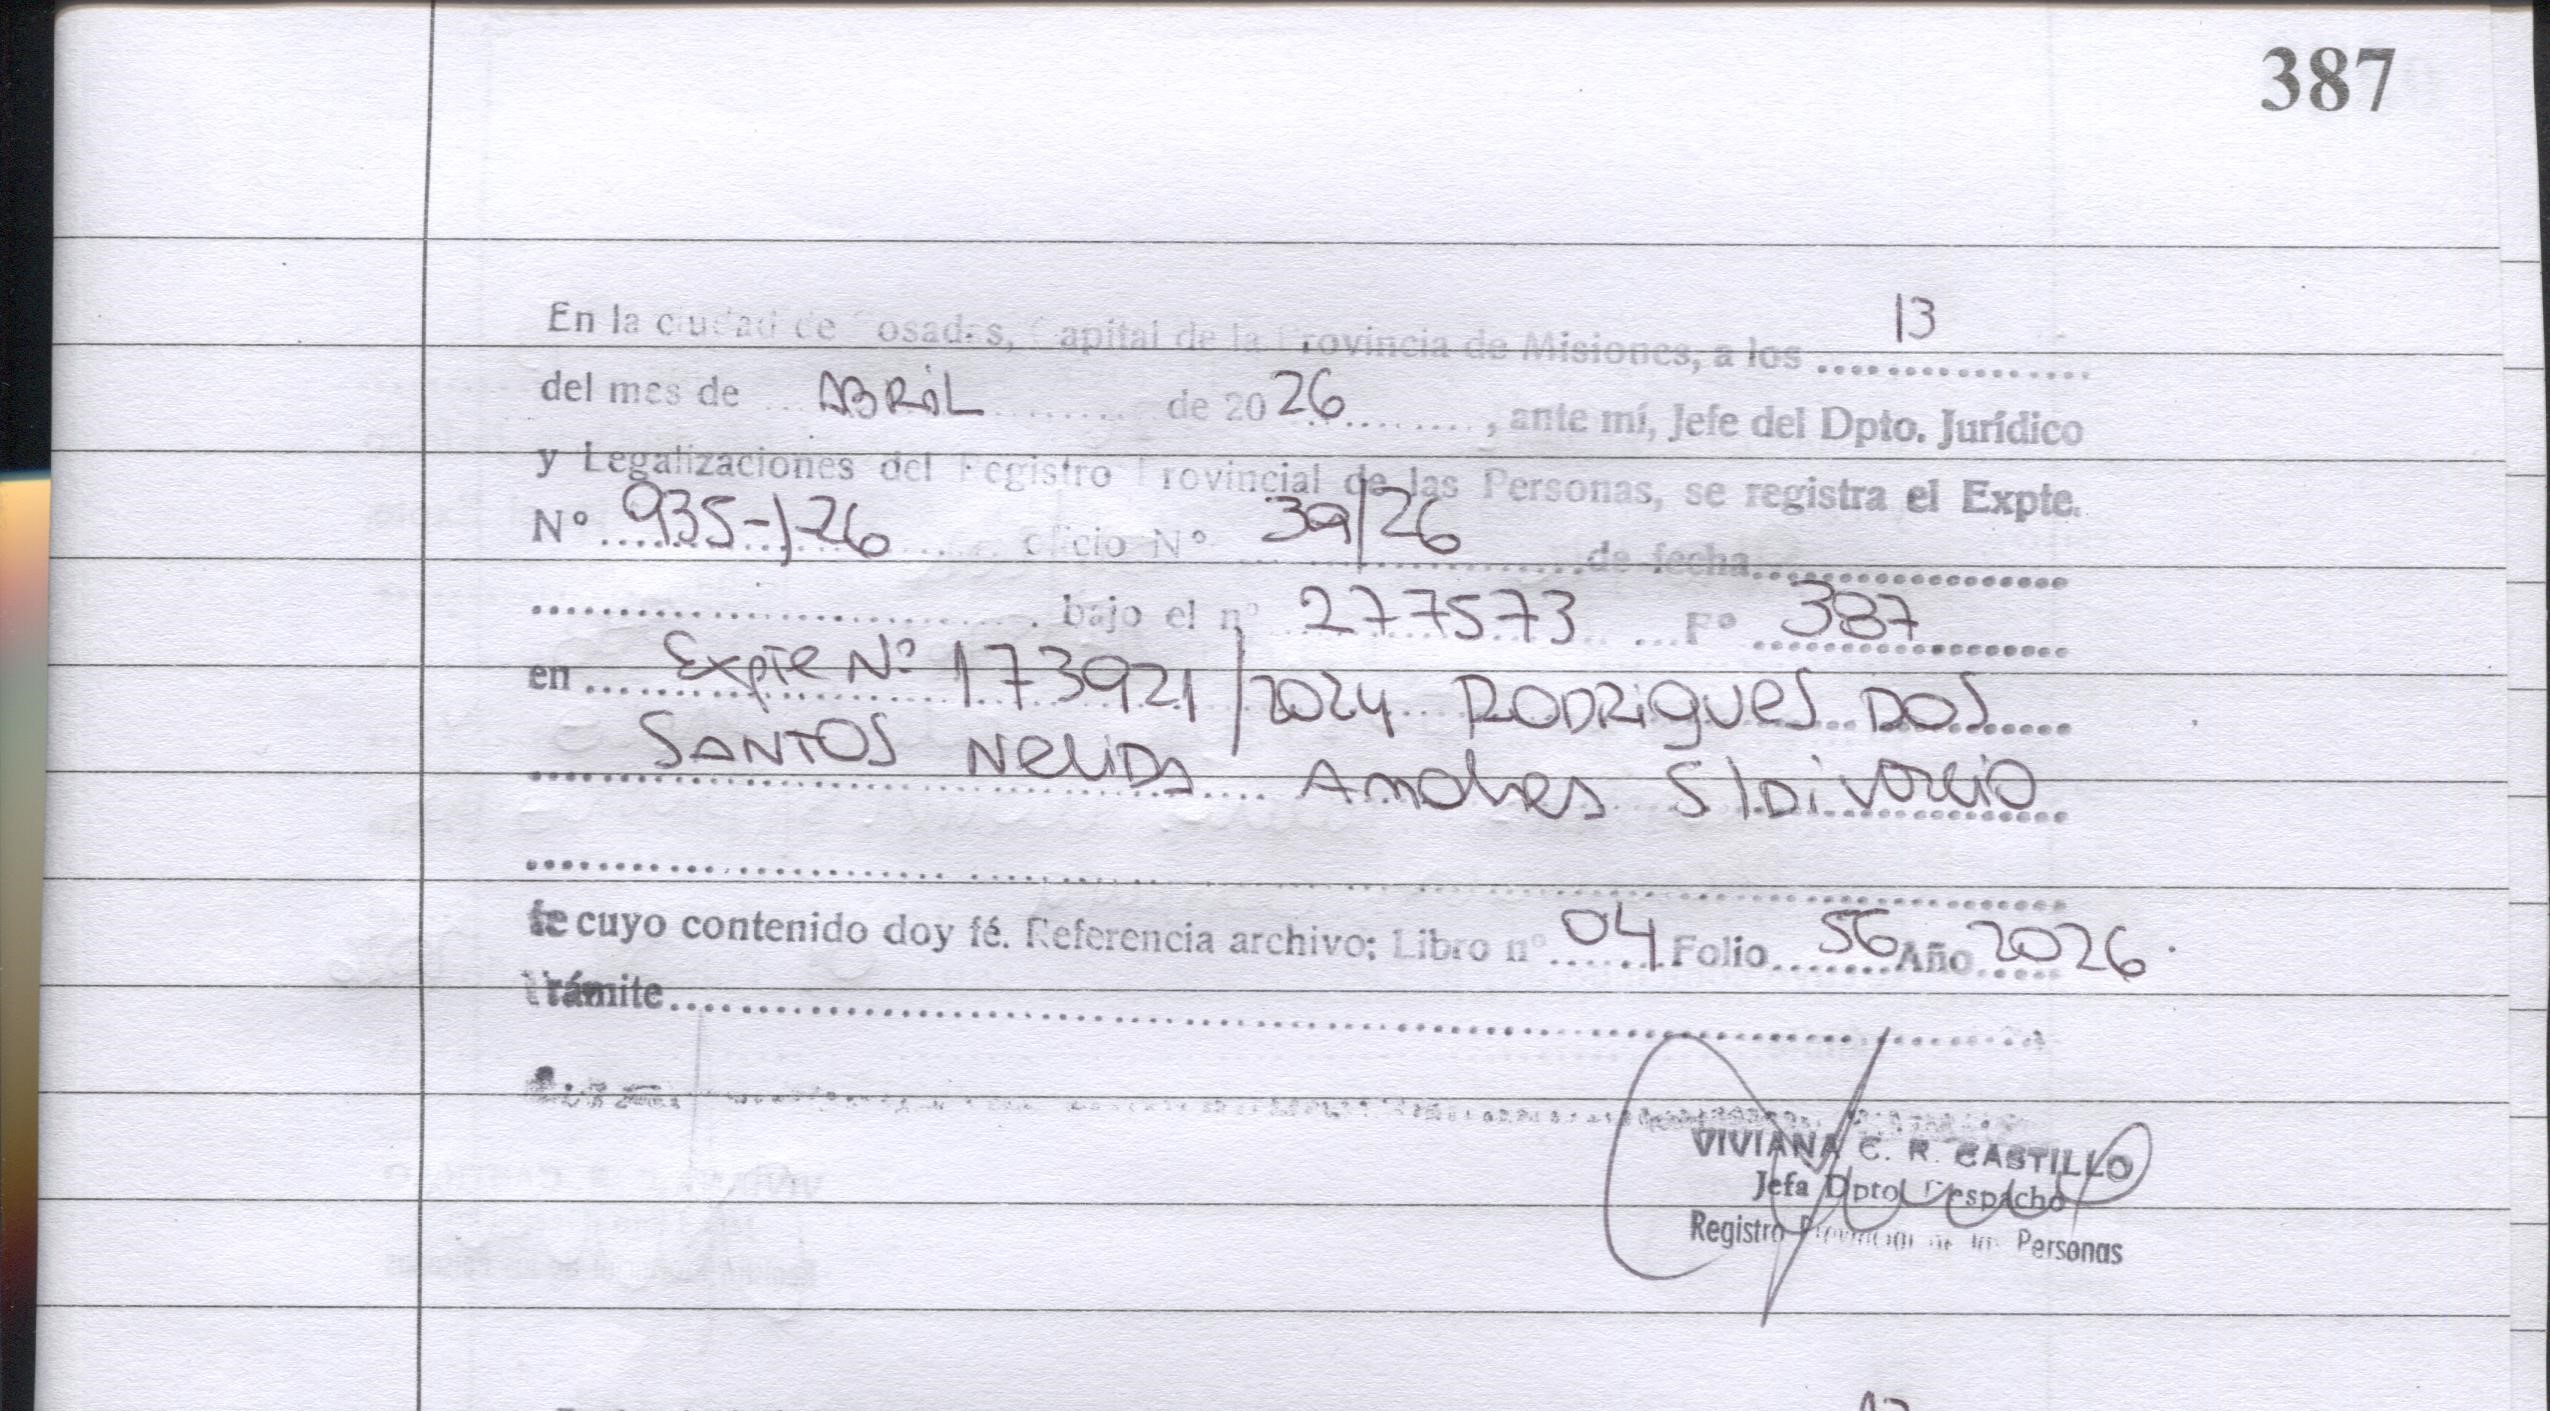 387
En la ciudad de Posadas, Capital de la Provincia de Misiones, a los ........ 13
del mes de ... ABRIL ........ de 20 26 ........, ante mí, Jefe del Dpto. Jurídico
y Legalizaciones del Registro Provincial de las Personas, se registra el Expte.
N° 935-/-26 ........ oficio N° 39/26 ........ de fecha ........
........ bajo el n° 277573 ... F° 387
en ... Expte N° 173921/2024 RODRIGUES DOS
SANTOS NELIDA Andrea S/Divorcio
........
de cuyo contenido doy fé. Referencia archivo: Libro n° 04 Folio 56 Año 2026.
Trámite ........
VIVIANA C. R. CASTILLO
Jefa Dpto. Despacho
Registro Provincial de las Personas